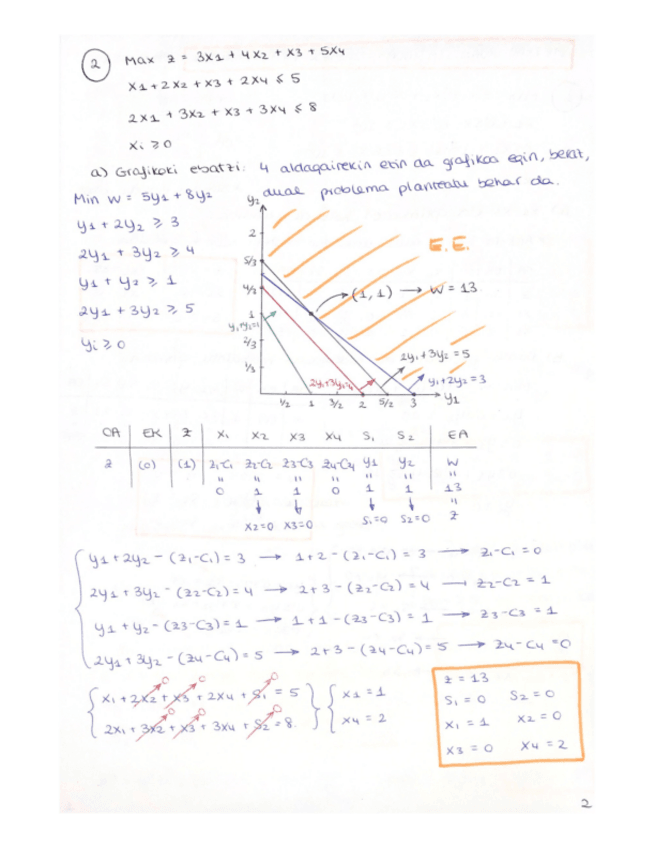 2 Max z = 3x1 + 4x2 + x3 + 5x4
x1 + 2x2 + x3 + 2x4 ≤ 5
2x1 + 3x2 + x3 + 3x4 ≤ 8
xi ≥ 0
a) Grafikoki ebatzi: 4 aldagairekin ezin da grafikoa egin, beraz,
dual problema planteatu behar da.
Min w = 5y1 + 8y2
y1 + 2y2 ≥ 3
2y1 + 3y2 ≥ 4
y1 + y2 ≥ 1
2y1 + 3y2 ≥ 5
yi ≥ 0
y2
2
5/3
4/3
1
y1+y2=1
2/3
1/3
E.E.
(1,1) → w = 13
2y1 + 3y2 = 5
y1 + 2y2 = 3
2y1+3y2=4
1/2 1 3/2 2 5/2 3 y1
OA EK z x1 x2 x3 x4 S1 S2 EA
z (0) (1) z1-c1 z2-c2 z3-c3 z4-c4 y1 y2 w
" " " " " " "
0 1 1 0 1 1 13
↓ ↓ ↓ ↓ "
x2=0 x3=0 S1=0 S2=0 z
y1 + 2y2 - (z1-c1) = 3 → 1+2 - (z1-c1) = 3 → z1-c1 = 0
2y1 + 3y2 - (z2-c2) = 4 → 2+3 - (z2-c2) = 4 → z2-c2 = 1
y1 + y2 - (z3-c3) = 1 → 1+1 - (z3-c3) = 1 → z3-c3 = 1
2y1 + 3y2 - (z4-c4) = 5 → 2+3 - (z4-c4) = 5 → z4-c4 = 0
0 0 0
x1 + 2x2 + x3 + 2x4 + S1 = 5
0 0 0
2x1 + 3x2 + x3 + 3x4 + S2 = 8
x1 = 1
x4 = 2
z = 13
S1 = 0 S2 = 0
x1 = 1 x2 = 0
x3 = 0 x4 = 2
2